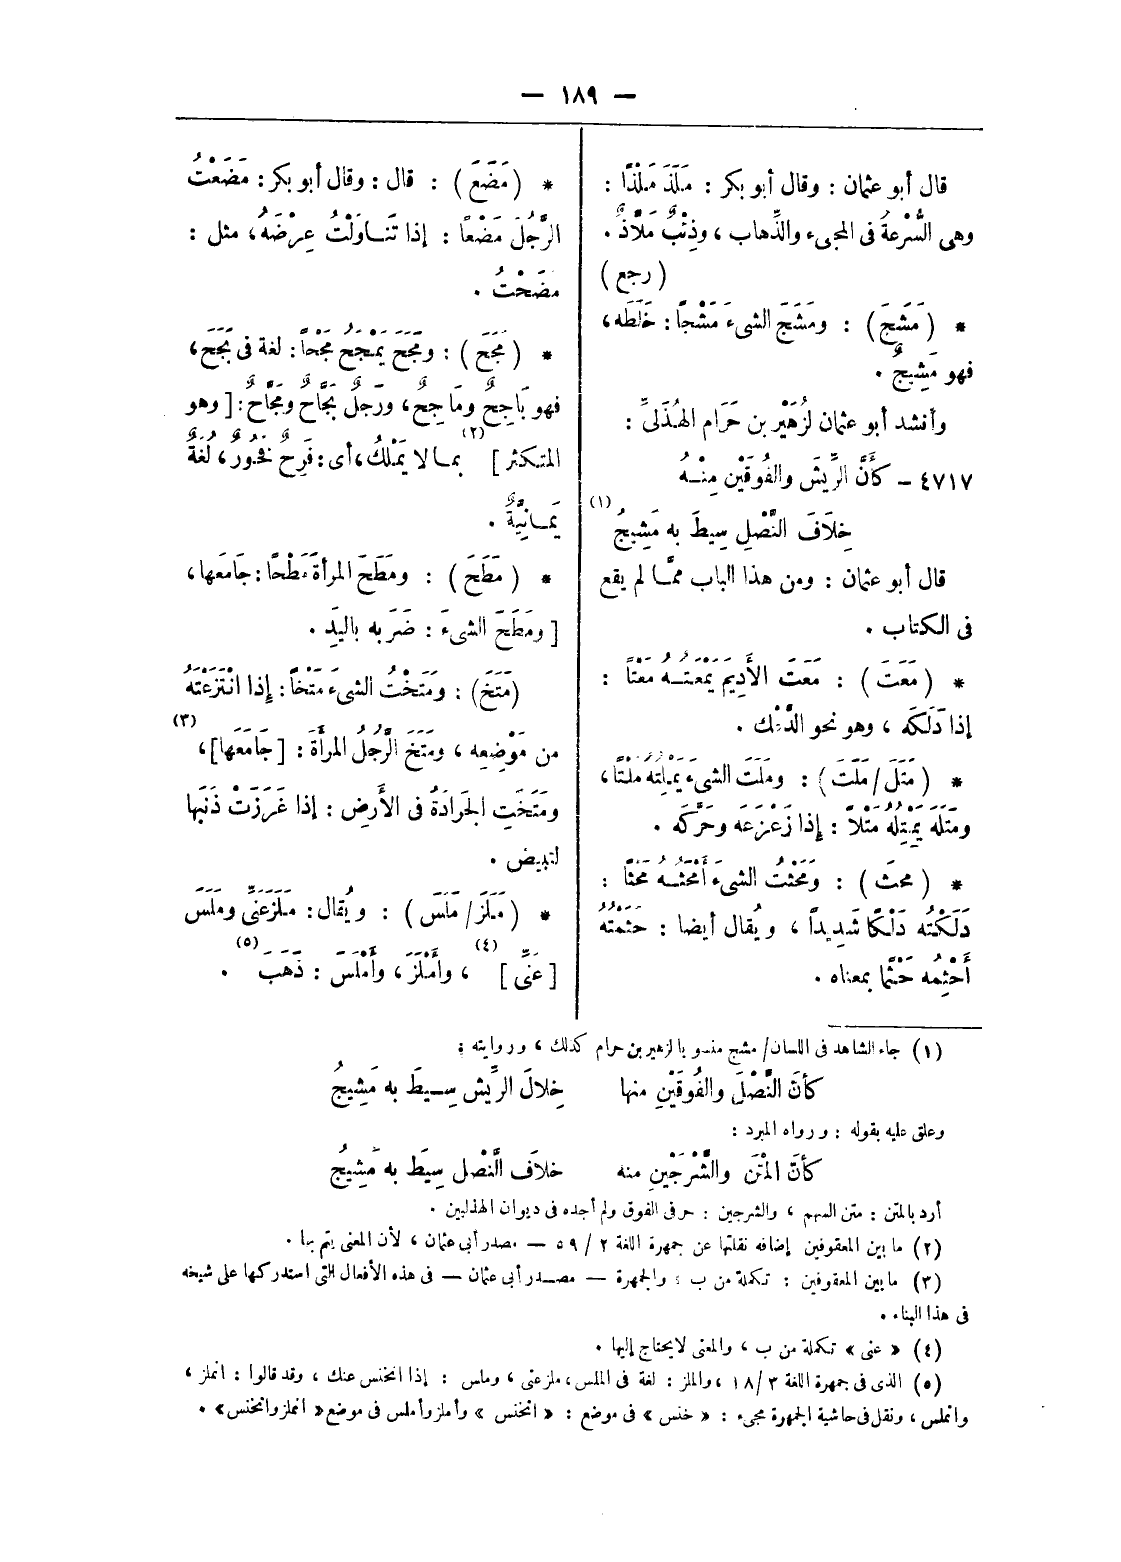 — ١٨٩ —
قال أبو عثمان : وقال أبو بكر : مَلَذَ مَلْذًا :
وهى السُّرْعةُ فى المجىء والذِّهاب ، وذِئْبٌ مَلَّاذٌ .
( رجع )
* ( مَشَجَ ) : ومَشَجَ الشىءَ مَشْجًا : خَلَطَه ،
فهو مَشِيجٌ .
وأنشد أبو عثمان لزُهَيْر بن حَرَام الهُذَلىِّ :
٤٧١٧ – كأَنَّ الرِّيشَ والفُوقَيْن مِنْــهُ
خِلَافَ النَّصْلِ سِيطَ به مَشِيجُ (١)
قال أبو عثمان : ومن هذا الباب ممَّا لم يقع
فى الكتاب .
* ( مَعَتَ ) : مَعَتَ الأَدِيمَ يَمْعَتُــه مَعْتًا :
إذا دَلَكَه ، وهو نحو الدَّلْك .
* ( مَتَلَ / مَلَتَ ) : ومَلَتَ الشىءَ يَمْلِتهُ مَلْتًا ،
ومَتَلَه يَمْتِلُه مَتْلاً : إذا زَعْزَعَه وحَرَّكَه .
* ( محَثَ ) : ومَحَثْتُ الشىءَ أَمْحَثُــهُ مَحْثًا :
دَلَكْتُه دَلْكًا شَدِيدًا ، ويُقال أيضا : حَثَمْتهُ
أَحْثِمُه حَثْمًا بمعناه .
* ( مَضَعَ ) : قال : وقال أبو بكر : مَضَعْتُ
الرَّجُلَ مَضْعًا : إذا تَنَــاوَلْتُ عِرْضَهُ ، مثل :
مضَحْتُ .
* ( مَجَحَ ) : ومَجَحَ يَمْجَحُ مَجْحًا : لغة فى بَجَح ،
فهو بَاجِحٌ ومَاجِحٌ ، ورَجلٌ بَجَّاحٌ ومَجَّاحٌ : [ وهو
المتكثر ] (٢) بمــا لا يَمْلكُ ، أى : فَرِحٌ فَخُورٌ ، لُغَةٌ
يَمــانِيَّةٌ .
* ( مَطَحَ ) : ومَطَحَ المرأةَ مَطْحًا : جَامَعها ،
[ ومَطَحَ الشىءَ : ضَرَبه باليدِ .
(مَتَخَ) : ومَتَخْتُ الشىءَ مَتْخًا : إذا انْتَزَعْتهُ
من مَوْضِعه ، ومَتَخَ الرَّجُلُ المرأَةَ : [ جَامَعها ] (٣) ،
ومَتَختِ الجَرادَةُ فى الأَرضِ : إذا غَرَزَتْ ذَنَبَها
لتبيض .
* ( مَلَزَ / مَلَسَ ) : ويُقال : مَلَزَعَنِّى ومَلَسَ
[ عَنِّى ] (٤) ، وأَمْلَزَ ، وأَمْلَسَ : ذَهَبَ (٥) .
(١) جاء الشاهد فى اللسان / مشج منسوبا لزهير بن حرام كذلك ، وروايته :
كأَنَ النَّصْلَ والفُوقَيْنِ منها خِلالَ الرِّيش سِــيطَ به مَشِيجُ
وعلق عليه بقوله : ورواه المبرد :
كأَنّ المْتَن والشَّرْجَيْنِ منه خلاَفَ النَّصْل سِيَط به مَشِيجُ
أرد بالمتن : متن السهم ، والشرجين : حرفى الفوق ولم أجده فى ديوان الهذليين .
(٢) ما بين المعقوفين إضافه نقلتها عن جمهرة اللغة ٢ / ٥٩ – مصدر أبى عثمان ، لأن المعنى يتم بها .
(٣) ما بين المعقوفين : تكملة من ب ؛ والجمهرة – مصــدر أبى عثمان – فى هذه الأفعال التى استدركها على شيخه
فى هذا البناء .
(٤) « عنى » تكملة من ب ، والمعنى لايحتاج إليها .
(٥) الذى فى جمهرة اللغة ٣ / ١٨ ، والملز : لغة فى الملس ، ملز عنى ، وملس : إذا انخنس عنك ، وقد قالوا : انملز ،
وانملس ، ونقل فى حاشية الجمهرة مجىء : « خنس » فى موضع : « انخنس » وأملز وأملس فى موضع « انملز وانخنس » .